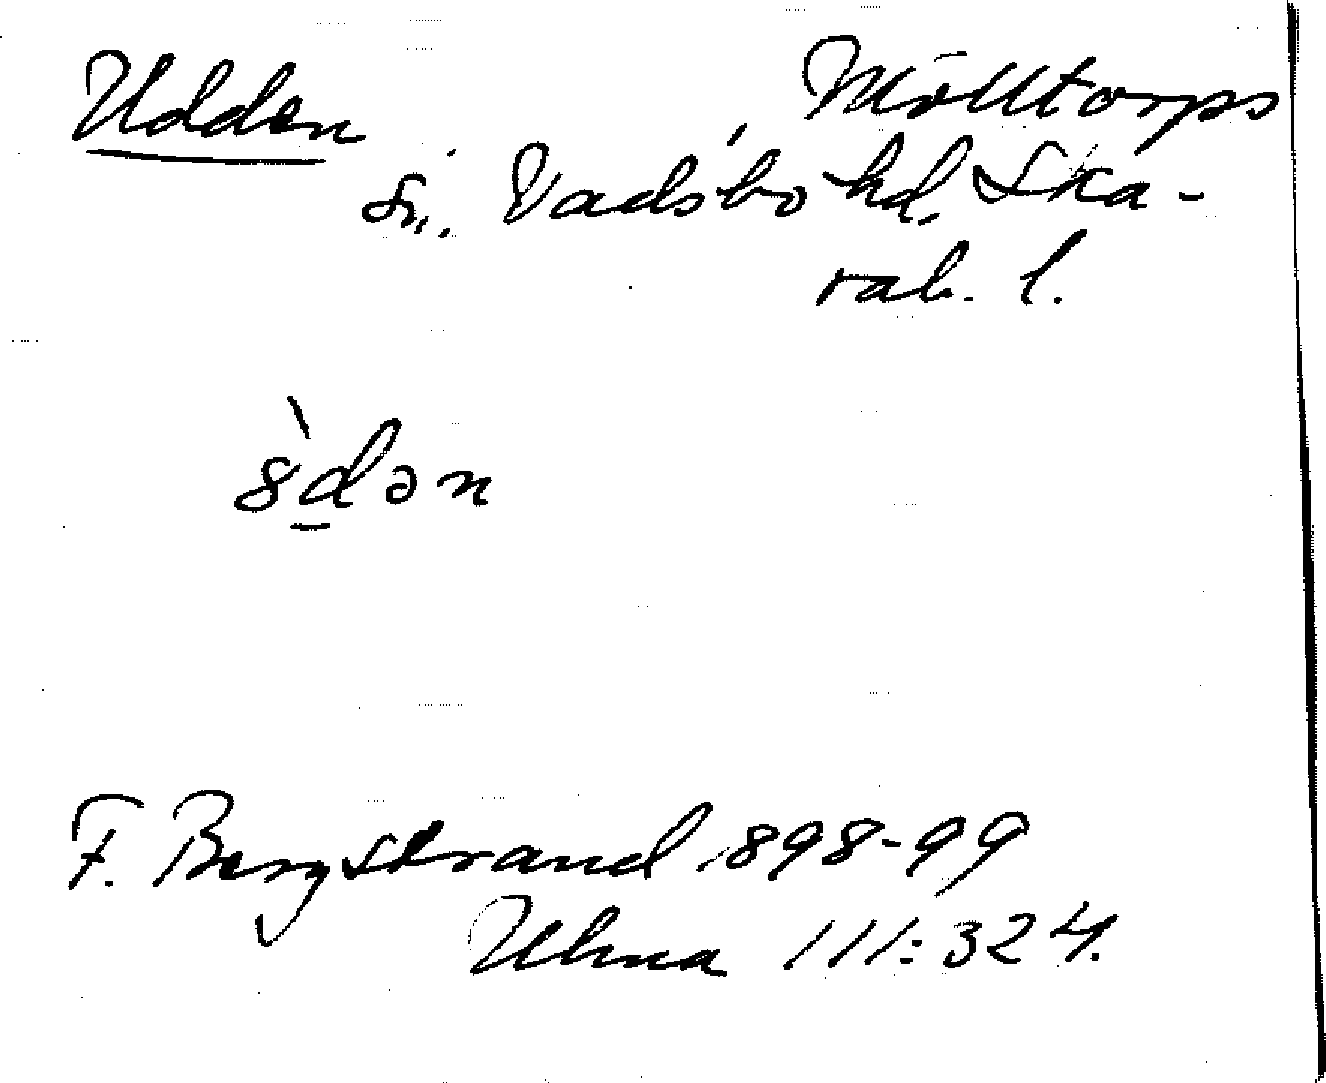 Udden, Mölltorps
sn. Vadsbo hd, Ska-
rab. l.
ȣ̀d̲ən
F. Bergstrand 1898-99
Uhna 111:324.